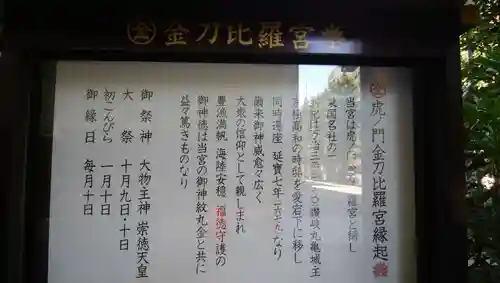 金刀比羅宮
虎ノ門金刀比羅宮縁起
当宮は虎ノ門 羅宮と称し
名社の一
讃岐丸亀城主
高和の時 を愛宕下に移し
同時遷座 延寶七年 なり
爾来御神威愈々広く
大衆の信仰として親しまれ
豊漁満帆 海陸安穏 福徳守護の
御神徳は当宮の御神紋丸金と共に
益々篤きものなり
御祭神 大物主神 崇徳天皇
大祭 十月九日・十日
初こんぴら 一月十日
御縁日 毎月十日